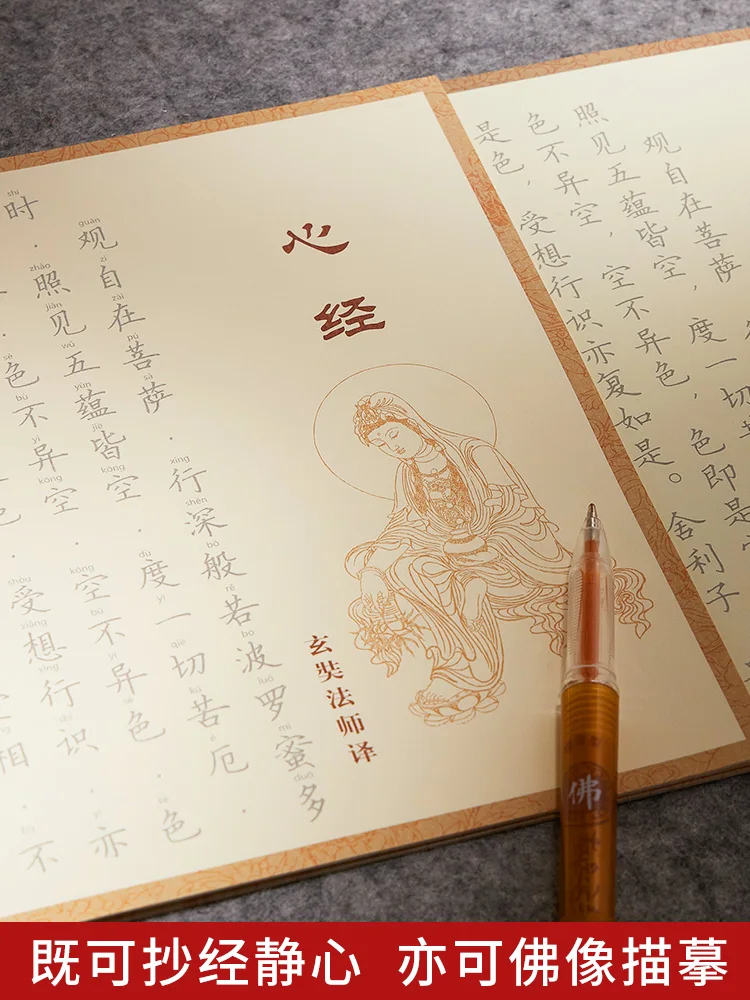 心经
玄奘法师译
guān zì zài pú sà xíng shēn bō rě bō luō mì duō
观自在菩萨.行深般若波罗蜜多
shí zhào jiàn wǔ yùn jiē kōng dù yī qiè kǔ è
时.照见五蕴皆空.度一切苦厄.
sè bù yì kōng kōng bù yì sè sè
色不异空.空不异色.色
shòu xiǎng xíng shí yì
受想行识.亦
相.不
观自在菩萨
照见五蕴皆空，度一切
色不异空，空不异色，色即是
是色，受想行识亦复如是。舍利子
佛
既可抄经静心 亦可佛像描摹